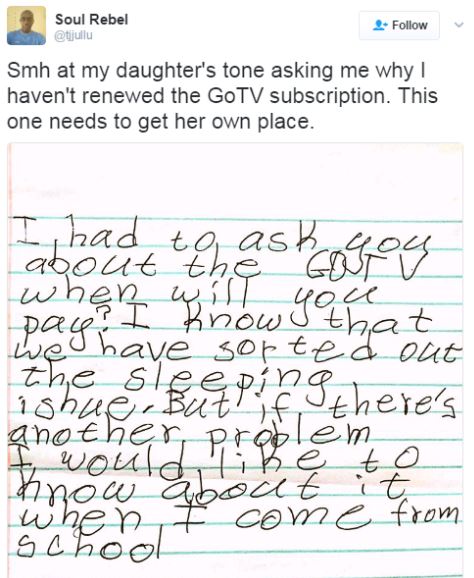 Soul Rebel
@tjjullu
Follow
Smh at my daughter's tone asking me why I
haven't renewed the GoTV subscription. This
one needs to get her own place.
I had to ask you
about the GOTV
when will you
pay? I know that
we have sorted out
the sleeping
ishue. But if there's
another problem
I would like to
know about it
when I come from
school